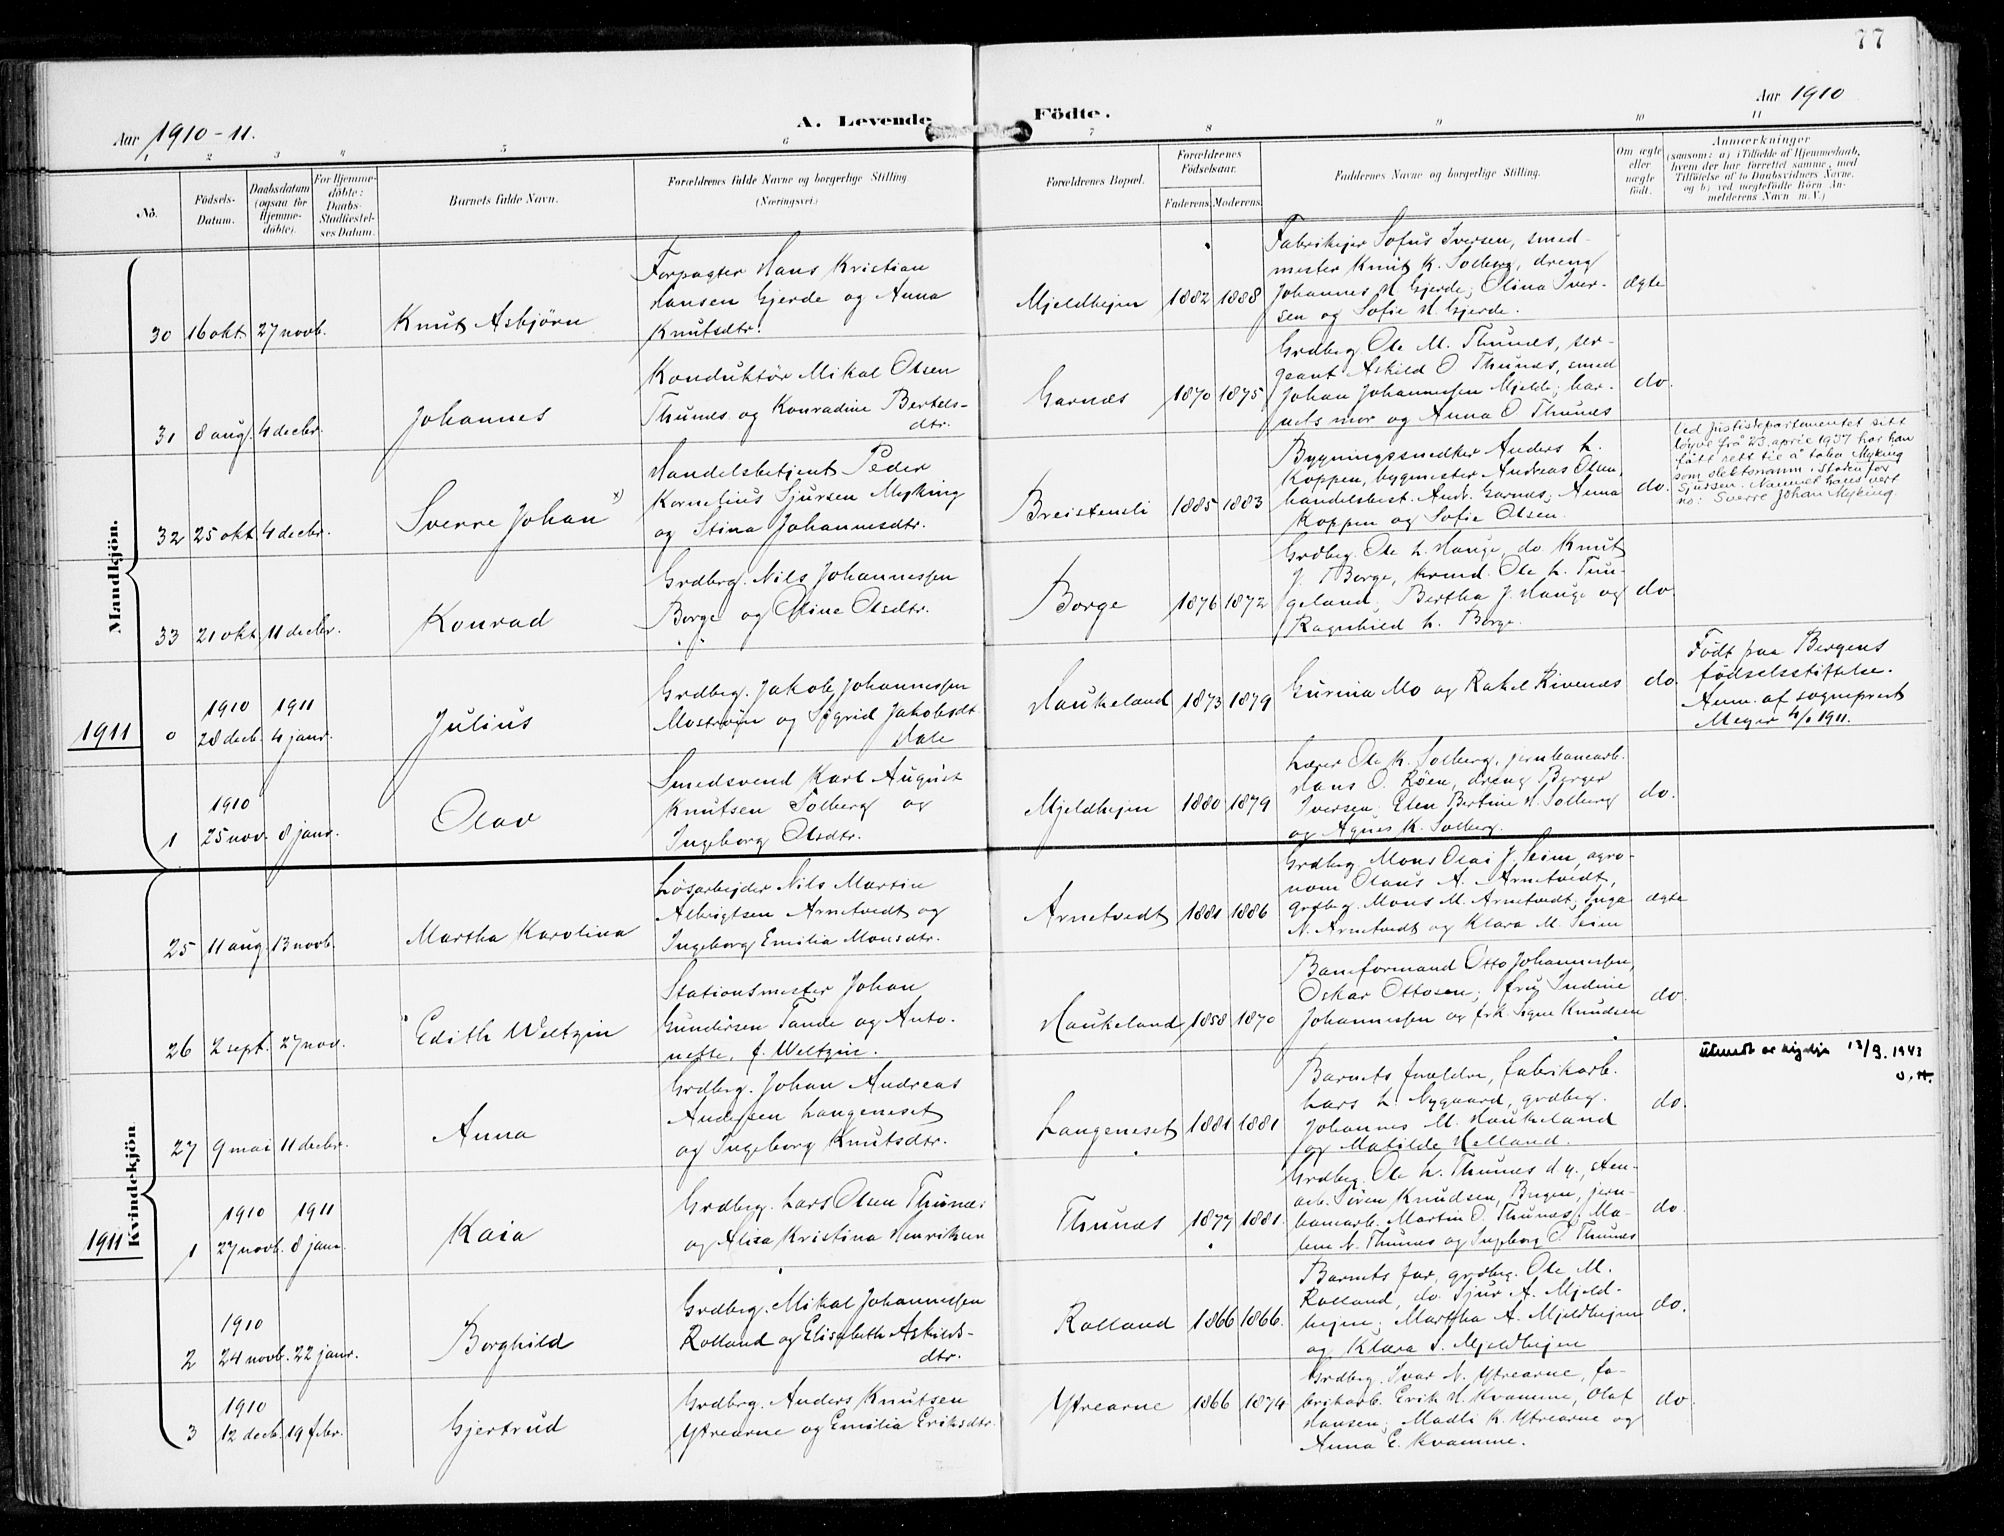 77
Aar 1910-11.
A. Levende
Födte.
Aar 1910
1 2 3 4 5 6 7 8 9 10 11
No.
Födsels-
Datum.
Daabsdatum
(ogsaa for
Hjemme-
döbte).
For Hjemme-
döbte:
Daabs-
Stadfæstel-
ses Datum.
Barnets fulde Navn.
Forældrenes fulde Navne og borgerlige Stilling
(Næringsvei.)
Forældrenes Bopæl.
Forældrenes
Födselsaar.
Faderens.
Moderens.
Faddernes Navne og borgerlige Stilling.
Om ægte
eller
uægte
födt.
Anmærkninger
(saasom: a) i Tilfælde af Hjemmedaab,
hvem der har forrettet samme, med
Tilföielse af to Daabsvidners Navne,
og b) ved uægtefödte Börn An-
melderens Navn m. V.)
Mandkjön.
30 16 okt. 27 novb.
Knut Asbjörn
Forpagter Hans Kristian
Hansen Gjerde og Anna
Knutsdtr.
Mjeldhejen 1882 1888
Fabrikejer Sofus Iversen, smed-
mester Knut K. Solberg, dreng
Johannes H Gjerde; Olina Iver-
sen og Sofie H. Gjerde.
ægte
31 8 aug. 4 decbr.
Johannes
Konduktör Mikal Olsen
Thunes og Konradine Bertels-
dtr.
Garnæs 1870 1875
Grdbrg. Ole M. Thunæs, ser-
geant Askild O Thunæs, smed
Johan Johannessen Mjelde; bar-
nets mor og Anna O Thunæs
do.
32 25 okt 4 decbr.
Sverre Johan x)
Handelsbetjent Peder
Kornelius Sjursen Myking
og Stina Johannesdtr.
Breistensli 1885 1883
Bygningssnedker Anders L.
Koppen, bygmester Andreas Olsen,
handelsbest. Andr. Garnæs; Anna
Koppen og Sofie Olsen.
do.
Ved justisdepartementet sitt
löyve frå 23. april 1937 har han
fått rett til å taka Myking
som slektsnamn i staden for
Sjussen. Namnet hans vert
no: Sverre Johan Myking.
33 21 okt. 11 decbr.
Konrad
Grdbrg. Nils Johannessen
Borge og Oline Olsdtr.
Borge 1876 1872
Grdbrg. Ole L. Hauge, do Knut
J. Borge, Ole L. Tun-
geland; Bertha J. Hauge og
Ragnhild L. Borge.
do.
1911
1910 1911
0 28 decb. 4 janr.
Julius
Grdbrg. Jakob Johannessen
Mostrøm og Sigrid Jakobsdt
Dale
Haukeland 1873 1879
Gurina Mo og Rakel Rivenæs
do.
Födt paa Bergens
födselsstiftelse.
Anm. af sogneprest
Meyer 4/1 1911.
1910
1 25 nov. 8 janr.
Olav
Smedsvend Karl August
Knutsen Solberg og
Ingeborg Olsdtr.
Mjeldhejen 1880 1879
Lærer Ole K. Solberg, jernbanearb.
Hans O. Röen, dreng Birger
Iversen; Elen Bertine H. Solberg
og Agnes K. Solberg.
do.
Kvindekjön
25 11 aug. 13 novb.
Martha Karolina
Lösarbejder Nils Martin
Albrigtsen Arnetvedt og
Ingeborg Emilia Monsdtr.
Arnetvedt 1881 1886
Grdbrg. Mons Olai J. Seim, agro-
nom Olaus A. Arnetvedt,
grdbrg. Mons M. Arnetvedt; Inga
N. Arnetvedt og Klara M. Seim
ægte
26 2 sept. 27 nov.
Edith Weltzin
Stationsmester Johan
Gundersen Tande og Anto-
nette, f. Weltzin.
Haukeland 1858 1870
Baneformand Otto Johannessen,
Oskar Ottosen; fru Indine
Johannessen og frk Signe Knudsen
do.
27 9 mai 11 decbr.
Anna
Grdbrg. Johan Andreas
Andersen Langeneset
og Ingeborg Knutsdtr.
Langeneset 1881 1881
Barnets forældre, fabrikarb.
Lars L. Nygaard, grdbrg.
Johannes M. Haukeland
og Matilde Helland.
do.
Utmeldt or kyrkja 13/9. 1943
1911
1910 1911
1 27 novb. 8 janr.
Kaia
Grdbrg. Lars Olsen Thunæs
og Alisa Kristina Henriksen
Thunæs 1877 1881.
Grdbrg. Ole L. Thunæs d y., sten-
arb. Sören Knudsen, Bergen, jern-
banearb. Martin O. Thunæs; Ma-
lene N. Thunæs og Ingeborg O Thunæs
do.
1910
2 24 novb. 22 janr.
Borghild
Grdbrg. Mikal Johannessen
Rolland og Elisabeth Askilds-
dtr.
Rolland 1866 1866.
Barnets far, grdbrg. Ole M.
Rolland, do. Sjur A. Mjeld-
hejen; Martha A. Mjeldhejen
og Klara S. Mjeldhejen
do.
1910
3 12 decb. 19 febr.
Gjertrud
Grdbrg. Anders Knutsen
Ytrearne og Emilia Eriksdtr.
Ytrearne 1866 1874
Grdbrg. Ivar N. Ytrearne, fa-
brikarb. Erik H. Kvamme, Olaf
Hansen; Madli K. Ytrearne og
Anna E. Kvamme.
do.